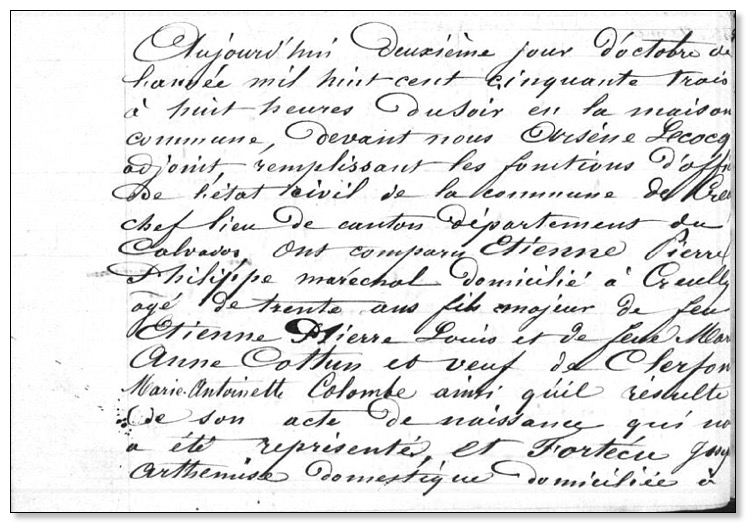 Aujourd'hui deuxième jour d'octobre de
l'année mil huit cent cinquante trois
à huit heures du soir en la maison
commune, devant nous Arsène Lecocq
adjoint, remplissant les fonctions d'offi
de l'état civil de la commune de Creu
chef lieu de canton département du
Calvados ont comparu Etienne Pierre
Philippe maréchal domicilié à Creully
agé de trente ans fils majeur de feu
Etienne Pierre Louis et de feue Mar
Anne Cottun et veuf de Clerfon
Marie-Antoinette Colombe ainsi qu'il résulte
de son acte de naissance qui no
a été représentés, et Fortecu
Arthemise domestique domiciliée à